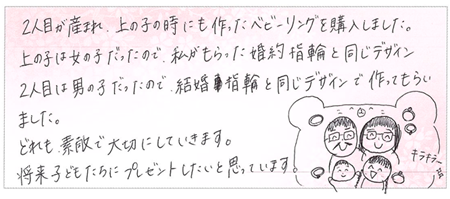 2人目が産まれ、上の子の時にも作ったベビーリングを購入しました。
上の子は女の子だったので、私がもらった婚約指輪と同じデザイン
2人目は男の子だったので、結婚指輪と同じデザインで作ってもらい
ました。
どれも、素敵で大切にしていきます。
将来子どもたちにプレゼントしたいと思っています。
キラキラー